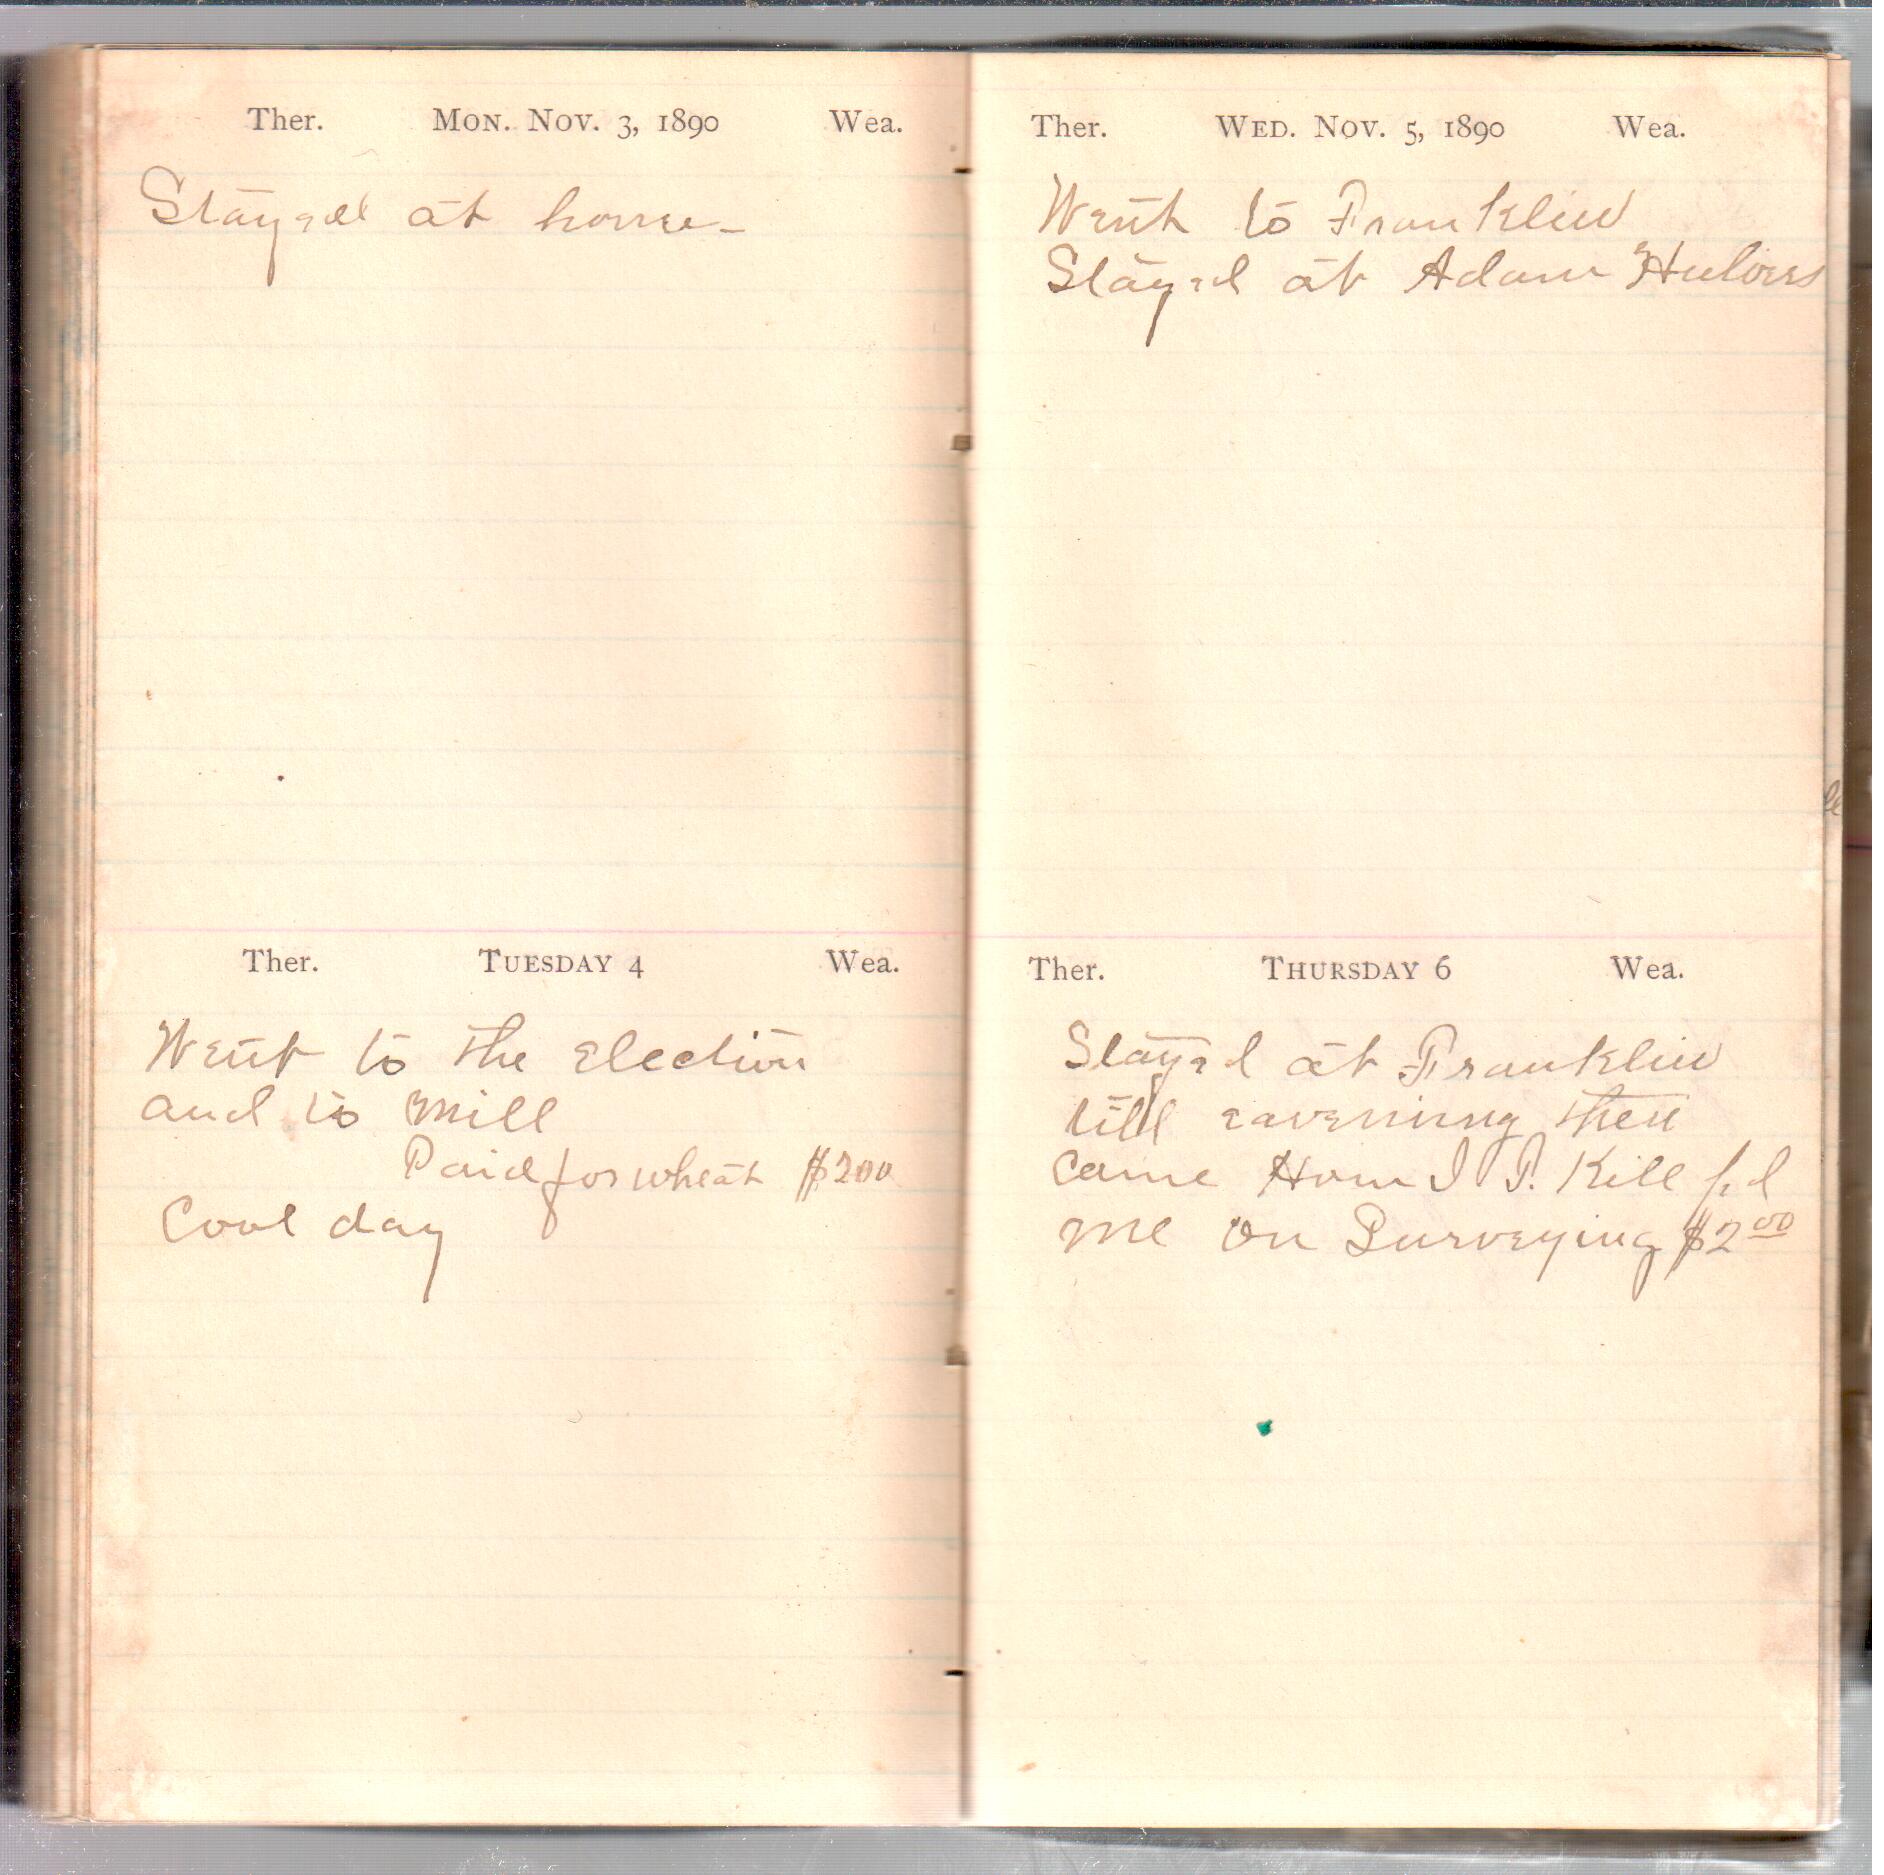 Ther. MON. NOV. 3, 1890 Wea.
Stayed at home-
Ther. TUESDAY 4 Wea.
Went to the Election
and to Mill
Paid for wheat $200
Cool day
Ther. WED. NOV. 5, 1890 Wea.
Went to Franklin
Stayed at Adam
Ther. THURSDAY 6 Wea.
Stayed at Franklin
till eavening then
came Hom J P. Kill pd
me on Surveying $2 00